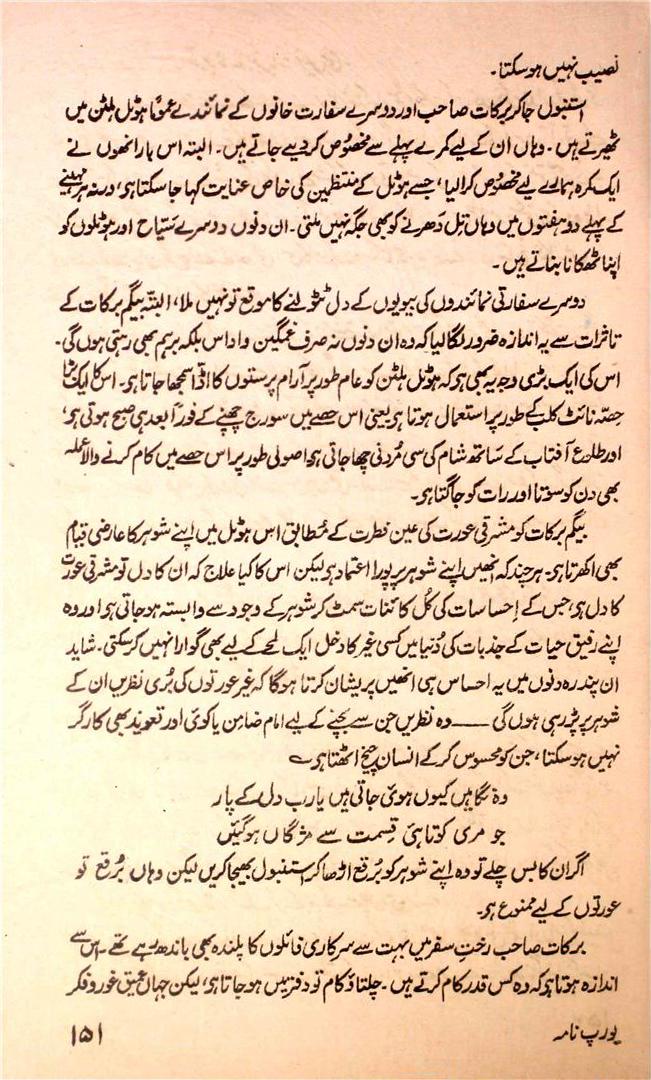 نصیب نہیں ہوسکتا۔
استنبول جاکر برکات صاحب اور دوسرے سفارت خانوں کے نمائندے عموماً ہوٹل ہلٹن میں
ٹھیرتے ہیں۔ وہاں ان کے لیے کمرے پہلے سے مخصوص کر دیے جاتے ہیں۔ البتہ اس بار انھوں نے
ایک کمرہ ہمارے لیے مخصوص کرالیا، جسے ہوٹل کے منتظمین کی خاص عنایت کہا جاسکتا ہو، ورنہ ہر مہینے
کے پہلے دو ہفتوں میں وہاں تِل دَھرنے کو بھی جگہ نہیں ملتی۔ ان دنوں دوسرے سَیّاح اور ہوٹلوں کو
اپنا ٹھکانا بناتے ہیں۔
دوسرے سفارتی نمائندوں کی بیویوں کے دل ٹٹولنے کا موقع تو نہیں ملا، البتّہ بیگم برکات کے
تاثرات سے یہ اندازہ ضرور لگالیا کہ وہ ان دنوں نہ صرف غمگین و اداس بلکہ برہم بھی رہتی ہوں گی۔
اس کی ایک بڑی وجہ یہ بھی ہو کہ ہوٹل ہلٹن کو عام طور پر آرام پرستوں کا اڈّا سمجھا جاتا ہو۔ اس کا ایک بڑا
حصّہ نائٹ کلب کے طور پر استعمال ہوتا ہو یعنی اس حصے میں سورج چھپنے کے فوراً بعد ہی صبح ہوتی ہو،
اور طلوع آفتاب کے سَاتھ شام کی سی مُردنی چھا جاتی ہو اصولی طور پر اس حصے میں کام کرنے والا عملہ
بھی دن کو سوتا اور رات کو جاگتا ہو۔
بیگم برکات کو مشرقی عورت کی عین فطرت کے مُطابق اس ہوٹل میں اپنے شوہر کا عارضی قیام
بھی اکھرتا ہو۔ ہر چند کہ انھیں اپنے شوہر پر پورا اعتماد ہو لیکن اس کا کیا علاج کہ ان کا دل تو مشرقی عورت
کا دل ہو، جس کے اِحساسات کی کُل کائنات سمٹ کر شوہر کے وجود سے وابستہ ہوجاتی ہو اور وہ
اپنے رفیق حیات کے جذبات کی دُنیا میں کسی غیر کا دخل ایک لمحے کے لیے بھی گوارا نہیں کرسکتی۔ شاید
ان پندرہ دنوں میں یہ احساس ہی انھیں پریشان کرتا ہوگا کہ غیر عورتوں کی بُری نظریں ان کے
شوہر پر پڑ رہی ہوں گی —— وہ نظریں جن سے بچنے کے لیے امام ضامن یا کوئی اور تعویذ بھی کارگر
نہیں ہوسکتا، جن کو محسوس کرکے انسان چیخ اٹھتا ہو ؎
وہ نگاہیں کیوں ہوئی جاتی ہیں یارب دل کے پار
جو مری کوتاہیٔ قسمت سے مژگاں ہوگئیں
اگر ان کا بس چلے تو وہ اپنے شوہر کو بُرقع اڑھاکر استنبول بھیجا کریں لیکن وہاں بُرقع تو
عورتوں کے لیے ممنوع ہو۔
برکات صاحب رختِ سفر میں بہت سے سرکاری فائلوں کا پلندہ بھی باندھ رہے تھے۔ اس سے
اندازہ ہوتا ہو کہ وہ کس قدر کام کرتے ہیں۔ چلتاؤ کام تو دفتر میں ہوجاتا ہو، لیکن جہاں عمیق غور و فکر
یورپ نامہ
۱۵۱